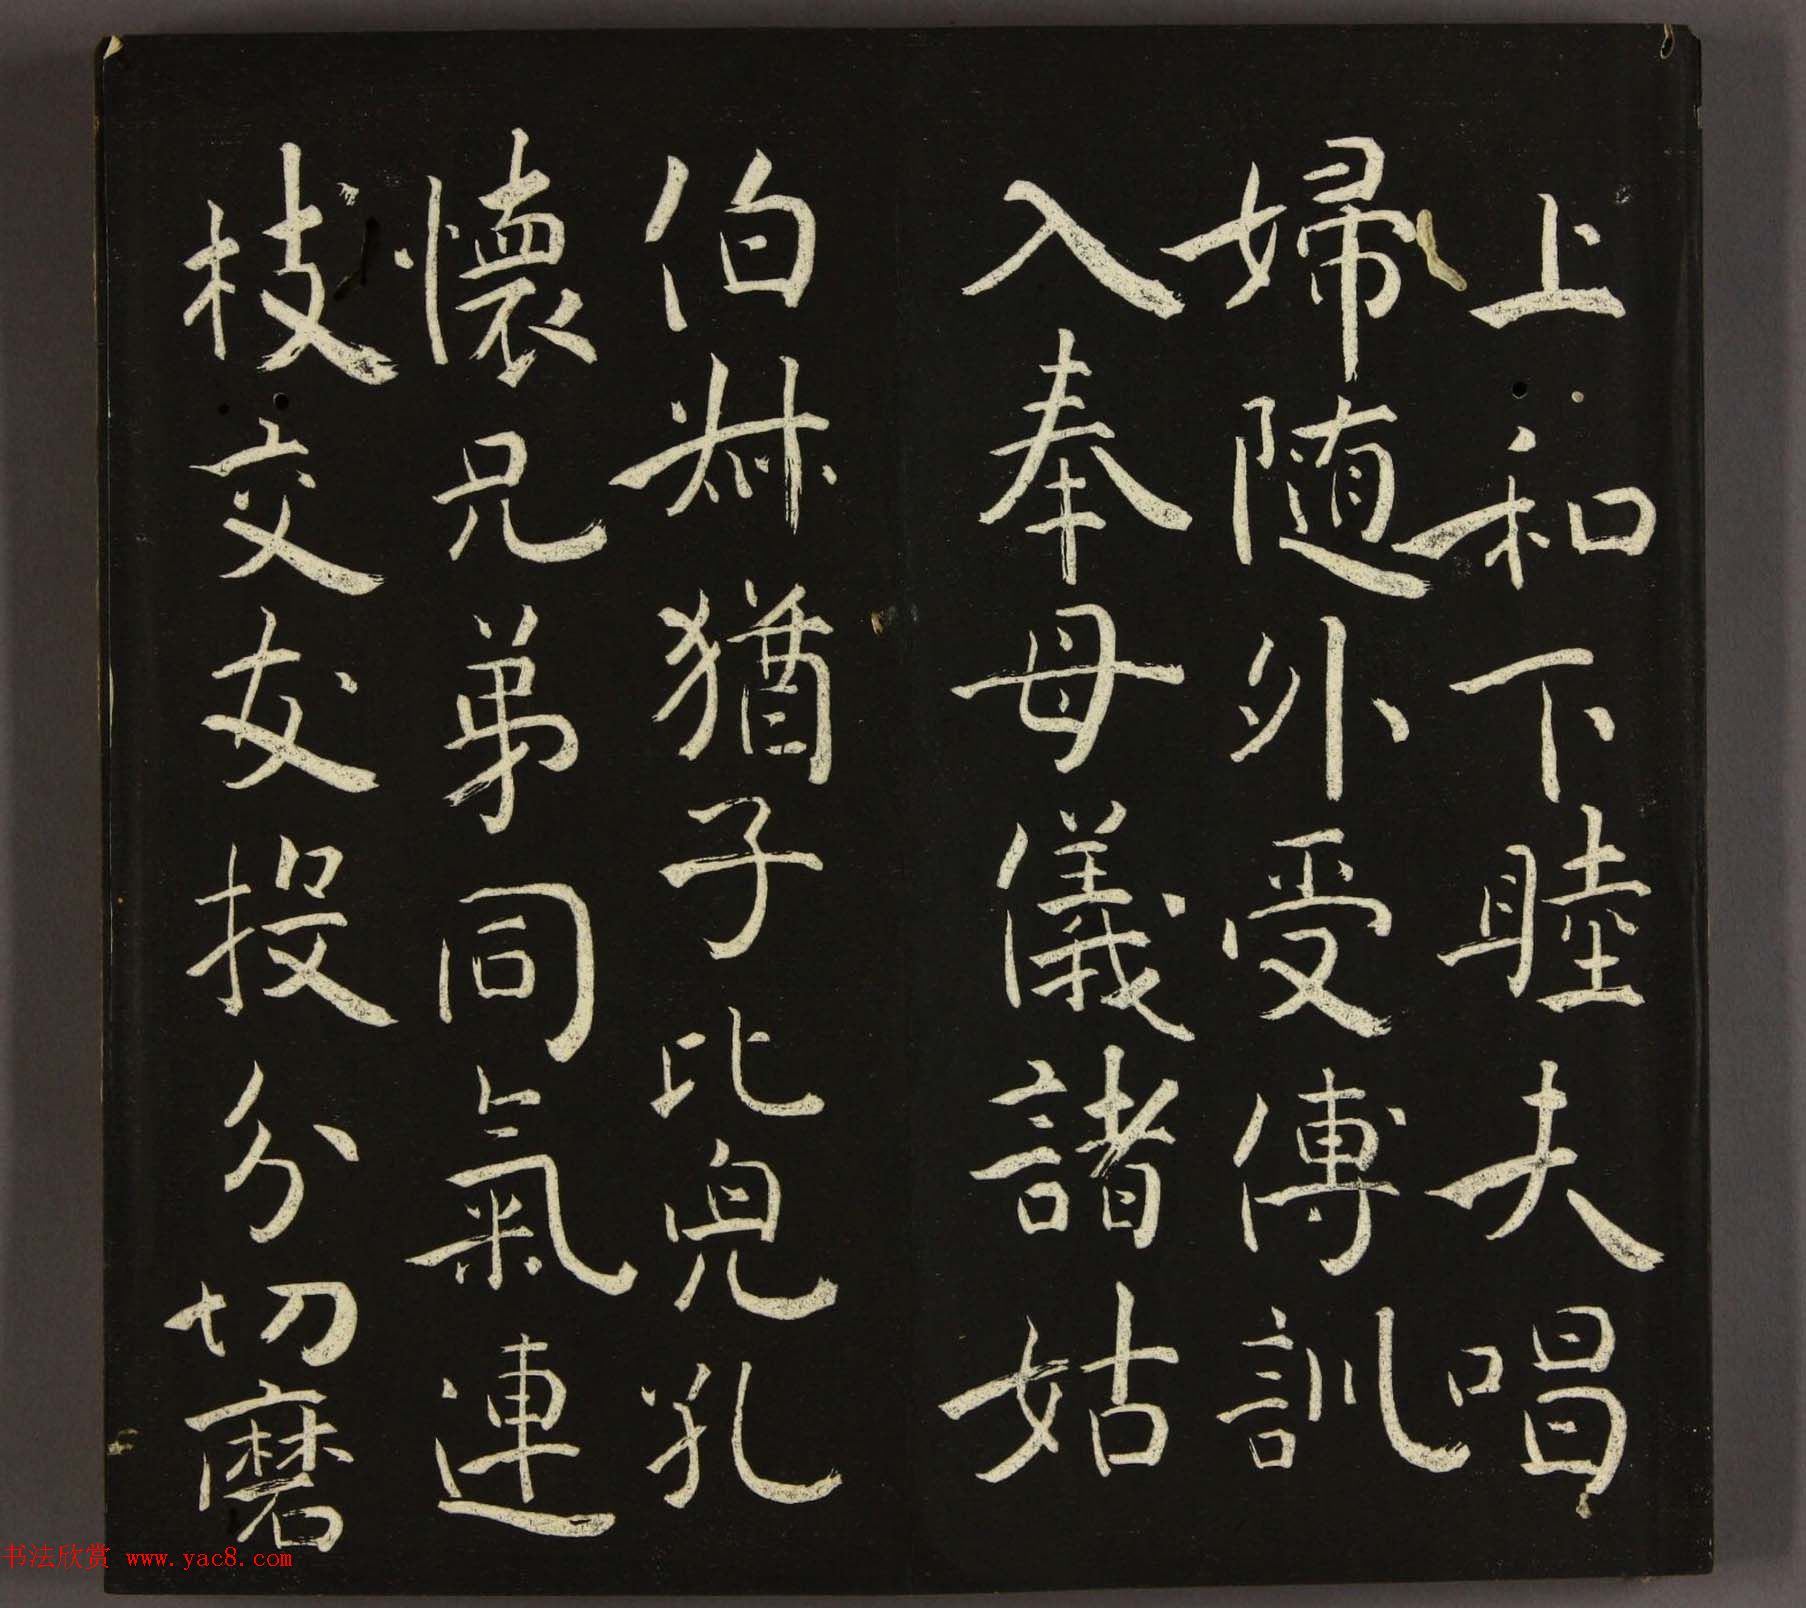 上和下睦夫唱
婦随外受傅訓
入奉母儀諸姑
伯叔猶子比兒孔
懷兄弟同氣連
枝交友投分切磨
书法欣赏 www.yac8.com